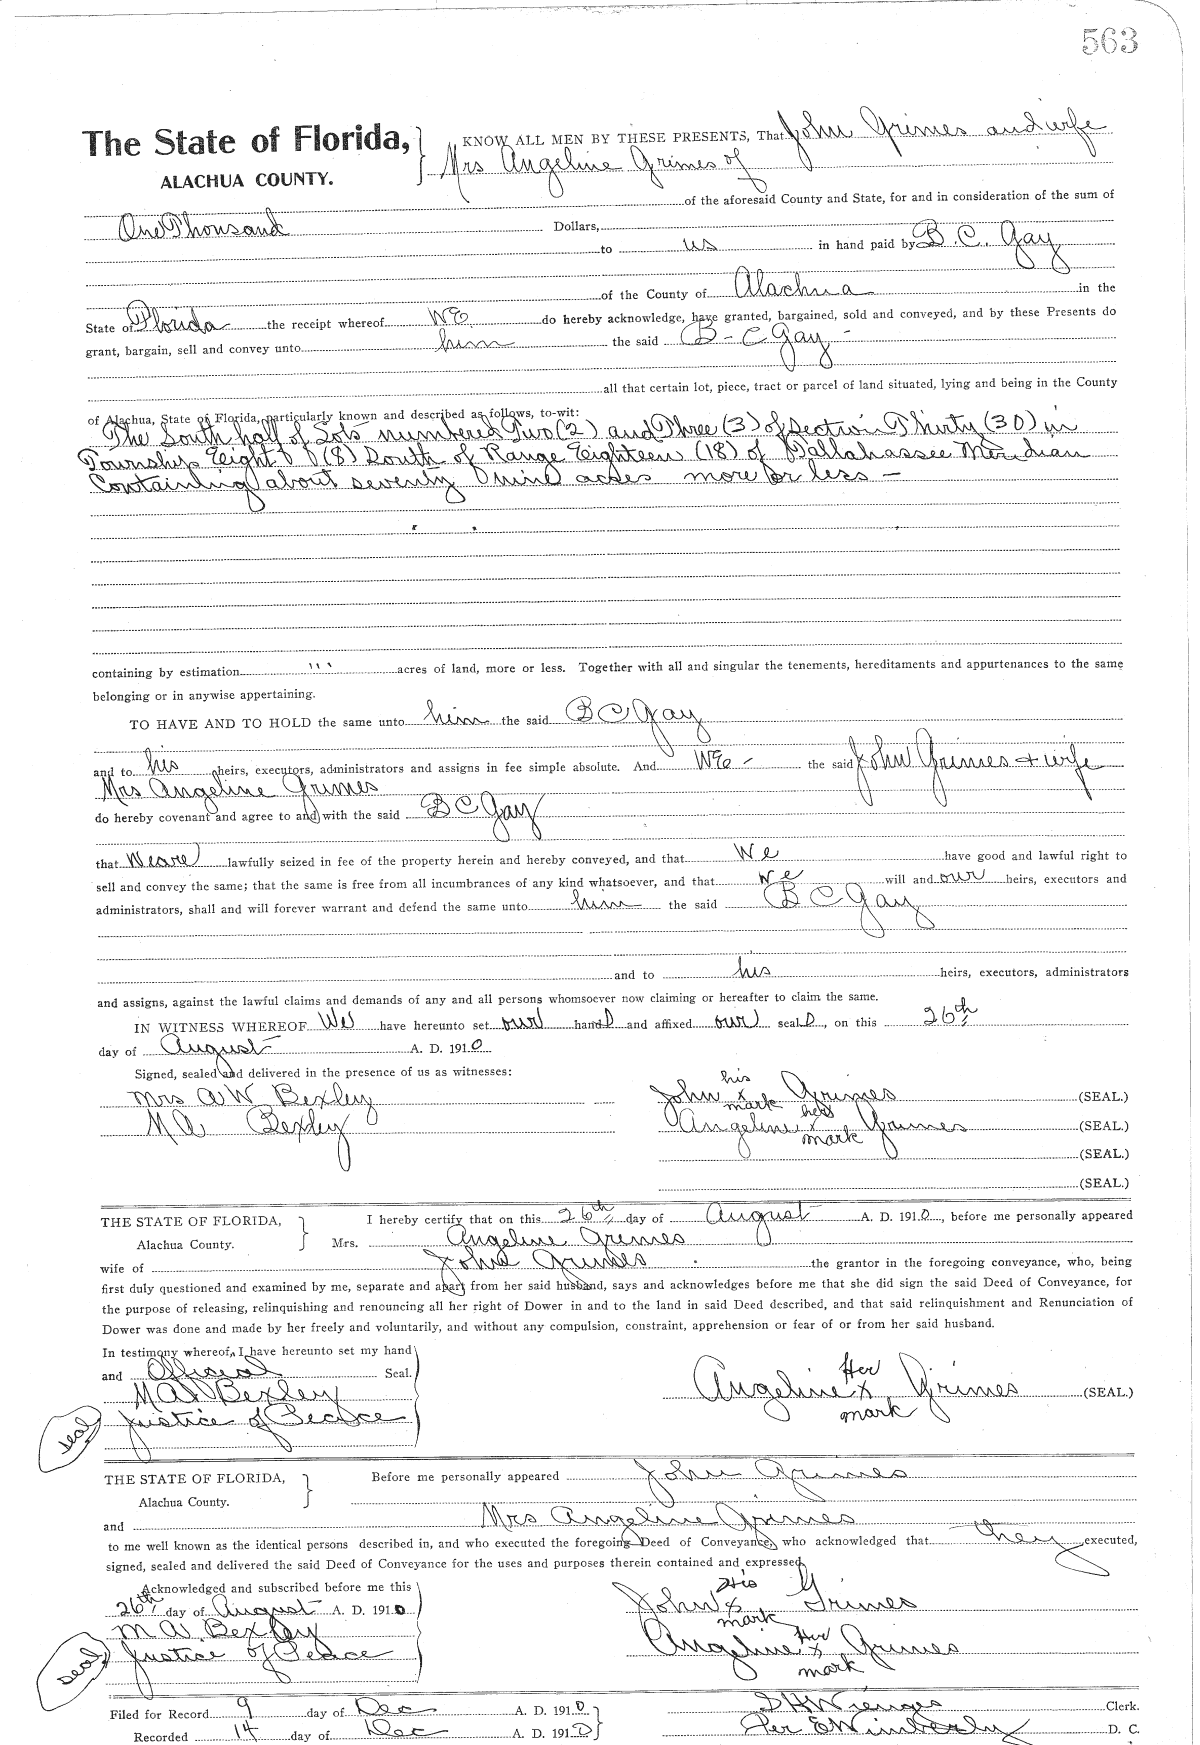 563
The State of Florida,
ALACHUA COUNTY.
KNOW ALL MEN BY THESE PRESENTS, That John Grimes and wife
Mrs Angeline Grimes of
of the aforesaid County and State, for and in consideration of the sum of
One Thousand Dollars,
to us in hand paid by B. C. Gay
of the County of Alachua in the
State of Florida the receipt whereof We do hereby acknowledge, have granted, bargained, sold and conveyed, and by these Presents do
grant, bargain, sell and convey unto him the said B - C Gay -
all that certain lot, piece, tract or parcel of land situated, lying and being in the County
of Alachua, State of Florida, particularly known and described as follows, to-wit:
The South half of Lots numbered Two (2) and Three (3) of Section Thirty (30) in
Township Eight (8) South of Range Eighteen (18) of Tallahassee Meridian
Containing about seventy nine acres more or less -
containing by estimation " ' acres of land, more or less. Together with all and singular the tenements, hereditaments and appurtenances to the same
belonging or in anywise appertaining.
TO HAVE AND TO HOLD the same unto him the said B C Gay
and to his heirs, executors, administrators and assigns in fee simple absolute. And We - the said John Grimes + wife
Mrs Angeline Grimes
do hereby covenant and agree to and with the said B C Gay
that We are lawfully seized in fee of the property herein and hereby conveyed, and that We have good and lawful right to
sell and convey the same; that the same is free from all incumbrances of any kind whatsoever, and that We will and our heirs, executors and
administrators, shall and will forever warrant and defend the same unto him the said B C Gay
and to his heirs, executors, administrators
and assigns, against the lawful claims and demands of any and all persons whomsoever now claiming or hereafter to claim the same.
IN WITNESS WHEREOF We have hereunto set our hand and affixed our seal, on this 26th
day of August A. D. 1910
Signed, sealed and delivered in the presence of us as witnesses:
Mrs A W Bexley
M A Bexley
his
John x Grimes (SEAL.)
mark hers
Angeline x Grimes (SEAL.)
mark
(SEAL.)
(SEAL.)
THE STATE OF FLORIDA,
Alachua County.
I hereby certify that on this 26th day of August A. D. 1910, before me personally appeared
Mrs. Angeline Grimes
wife of John Grimes the grantor in the foregoing conveyance, who, being
first duly questioned and examined by me, separate and apart from her said husband, says and acknowledges before me that she did sign the said Deed of Conveyance, for
the purpose of releasing, relinquishing and renouncing all her right of Dower in and to the land in said Deed described, and that said relinquishment and Renunciation of
Dower was done and made by her freely and voluntarily, and without any compulsion, constraint, apprehension or fear of or from her said husband.
In testimony whereof, I have hereunto set my hand
and Official Seal.
M A Bexley
Justice of Peace
seal
Her
Angeline x Grimes (SEAL.)
mark
THE STATE OF FLORIDA,
Alachua County.
Before me personally appeared John Grimes
and Mrs Angeline Grimes
to me well known as the identical persons described in, and who executed the foregoing Deed of Conveyance, who acknowledged that they executed,
signed, sealed and delivered the said Deed of Conveyance for the uses and purposes therein contained and expressed
Acknowledged and subscribed before me this
26th day of August A. D. 1910
M A Bexley
Justice of Peace
seal
His
John x Grimes
mark
Her
Angeline x Grimes
mark
Filed for Record 9 day of Dec A. D. 1910
Recorded 14 day of Dec A. D. 1910
S H Wienges Clerk.
Per E Wimberly D. C.